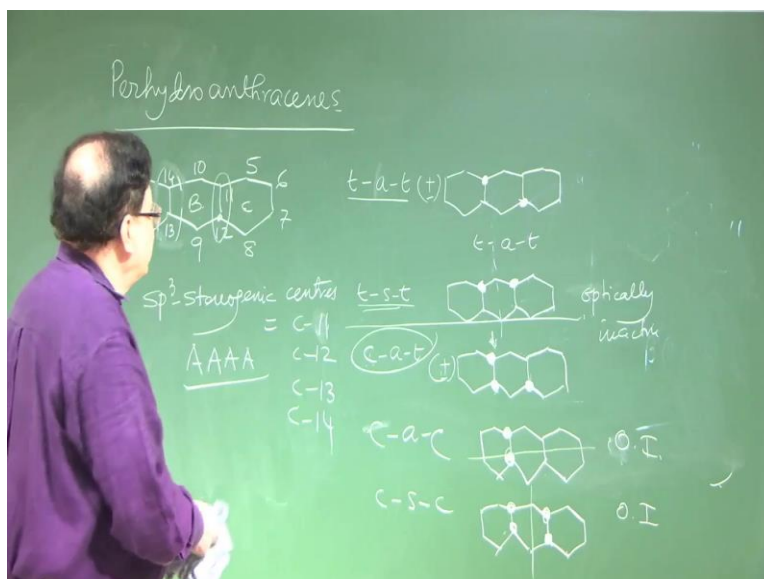 Perhydroanthracenes
14 10 5 6
B 11 C 7
13 12
9 8
t-a-t (±)
t-a-t
sp³-stereogenic centres
= C-11
C-12
C-13
C-14
AAAA
t-s-t optically
inactive
c-a-t (±)
C-a-C O.I.
C-S-C O.I